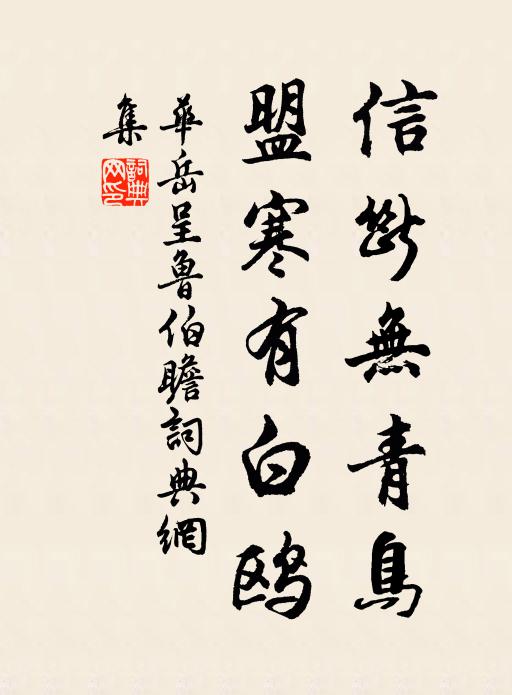 信斷無青鳥
盟寒有白鷗
華岳呈魯伯瞻詞典網
集
詞典網印